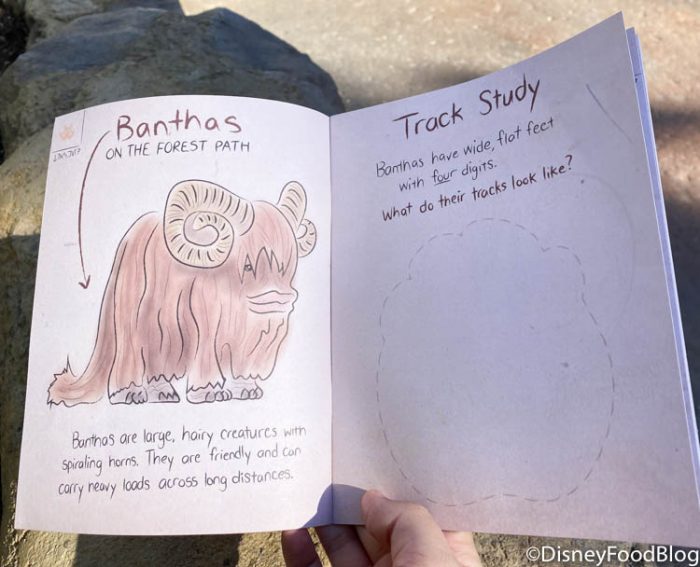 Banthas
ON THE FOREST PATH
Banthas are large, hairy creatures with
spiraling horns. They are friendly and can
carry heavy loads across long distances.
Track Study
Banthas have wide, flat feet
with four digits.
What do their tracks look like?
©DisneyFoodBlog